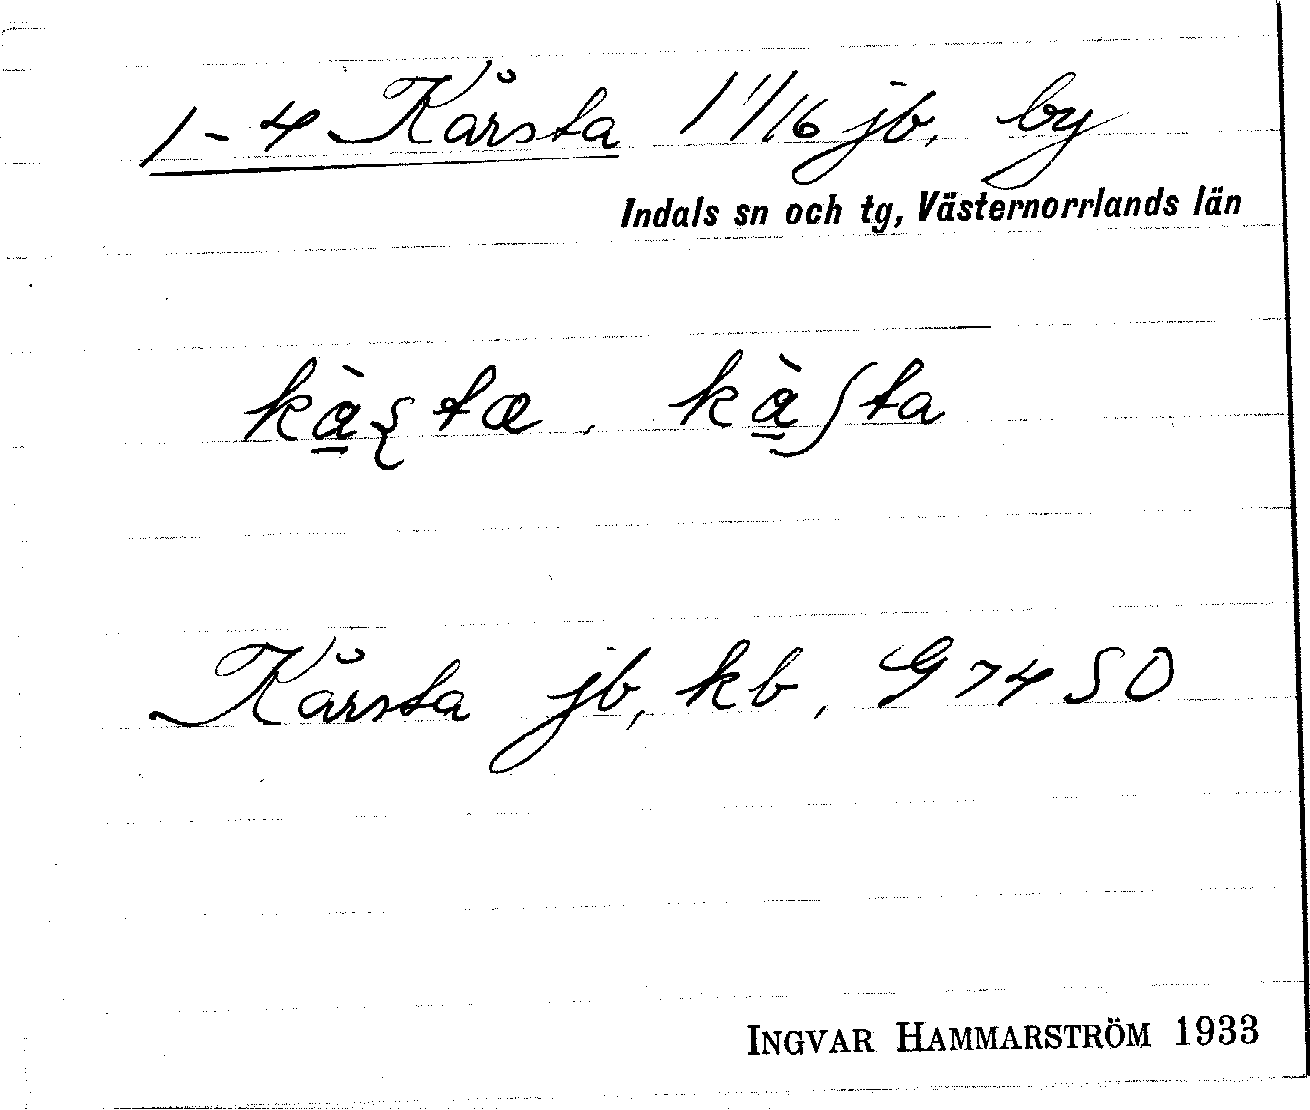 1-4 Kårsta 1 1/16 jb, by
Indals sn och tg, Västernorrlands län
kàʂtæ, kàʃta
Kårsta jb, kb, G 74 SO
INGVAR HAMMARSTRÖM 1933